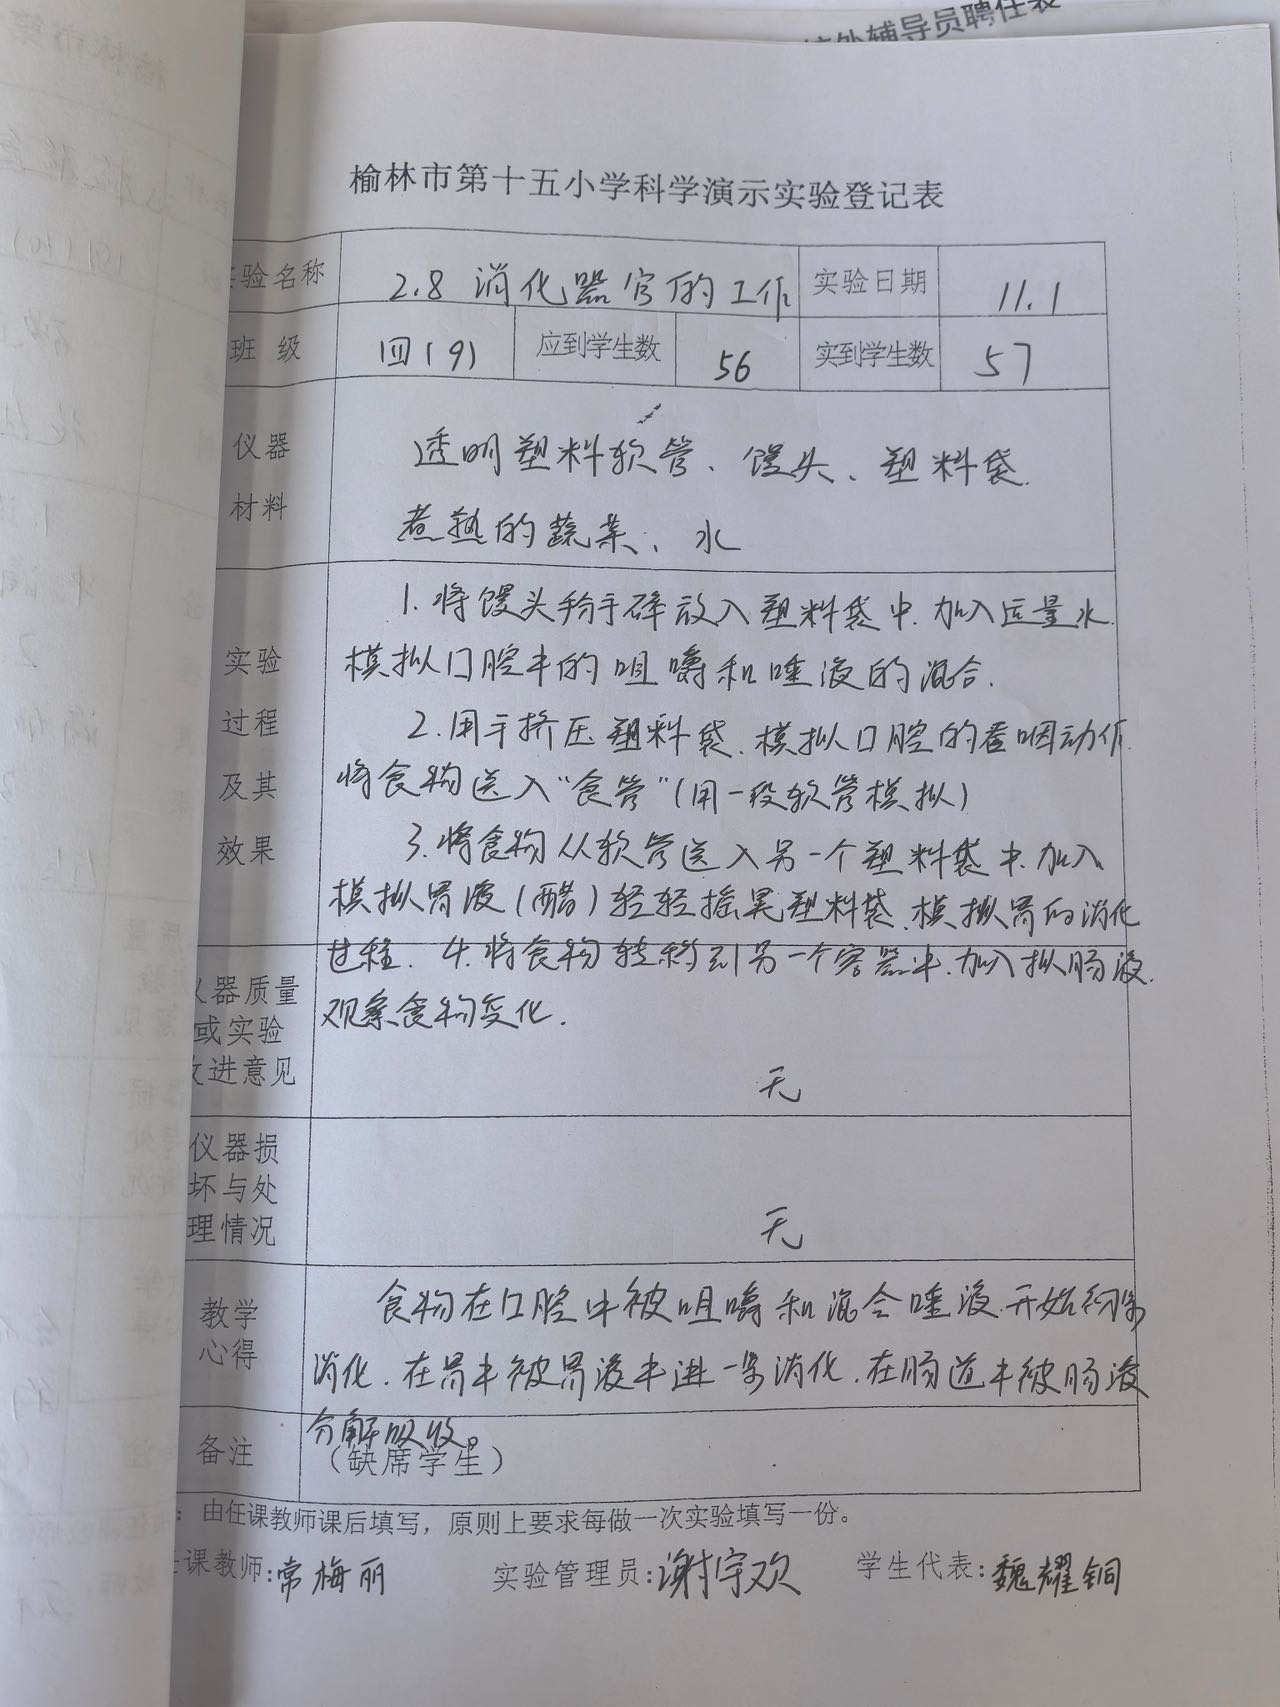 校外辅导员聘任表
榆林市第十五小学科学演示实验登记表
验名称 2.8 消化器官的工作 实验日期 11.1
班 级 四(9) 应到学生数 56 实到学生数 57
仪器
材料
透明塑料软管、馒头、塑料袋.
煮熟的蔬菜、水
实验
过程
及其
效果
1.将馒头掰碎放入塑料袋中.加入适量水.
模拟口腔中的咀嚼和唾液的混合.
2.用手挤压塑料袋.模拟口腔的吞咽动作.
将食物送入“食管”(用一段软管模拟)
3.将食物从软管送入另一个塑料袋中.加入
模拟胃液(醋)轻轻摇晃塑料袋.模拟胃的消化
过程. 4.将食物转移到另一个容器中.加入拟肠液.
观察食物变化.
仪器质量
或实验
改进意见
无
仪器损
坏与处
理情况
无
教学
心得
食物在口腔中被咀嚼和混合唾液.开始初步
消化.在胃中被胃液中进一步消化.在肠道中被肠液
分解吸收。
备注 (缺席学生)
：由任课教师课后填写，原则上要求每做一次实验填写一份。
课教师:常梅丽 实验管理员:谢宇欢 学生代表:魏耀铜